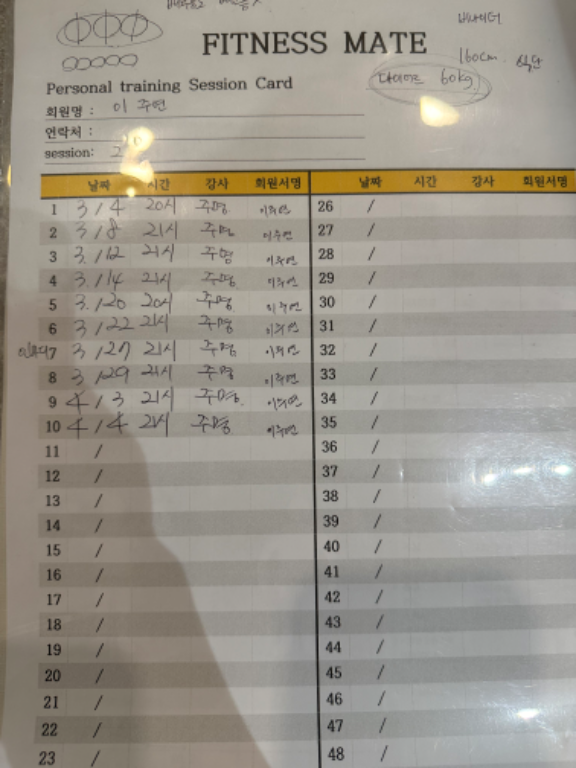 160cm. 식단
FITNESS MATE
다이어트 60kg
Personal training Session Card
회원명 : 이주연
연락처 :
session:
날짜 시간 강사 회원서명 날짜 시간 강사 회원서명
1 3/4 20시 주명 이주연 26 /
2 3/8 21시 주명 이주연 27 /
3 3/12 21시 주명 이주연 28 /
4 3/14 21시 주명 이주연 29 /
5 3/20 20시 주명 이주연 30 /
6 3/22 21시 주명 이주연 31 /
7 3/27 21시 주명 이주연 32 /
8 3/29 21시 주명 이주연 33 /
9 4/3 21시 주명 이주연 34 /
10 4/4 21시 주명 이주연 35 /
11 / 36 /
12 / 37 /
13 / 38 /
14 / 39 /
15 / 40 /
16 / 41 /
17 / 42 /
18 / 43 /
19 / 44 /
20 / 45 /
21 / 46 /
22 / 47 /
23 / 48 /